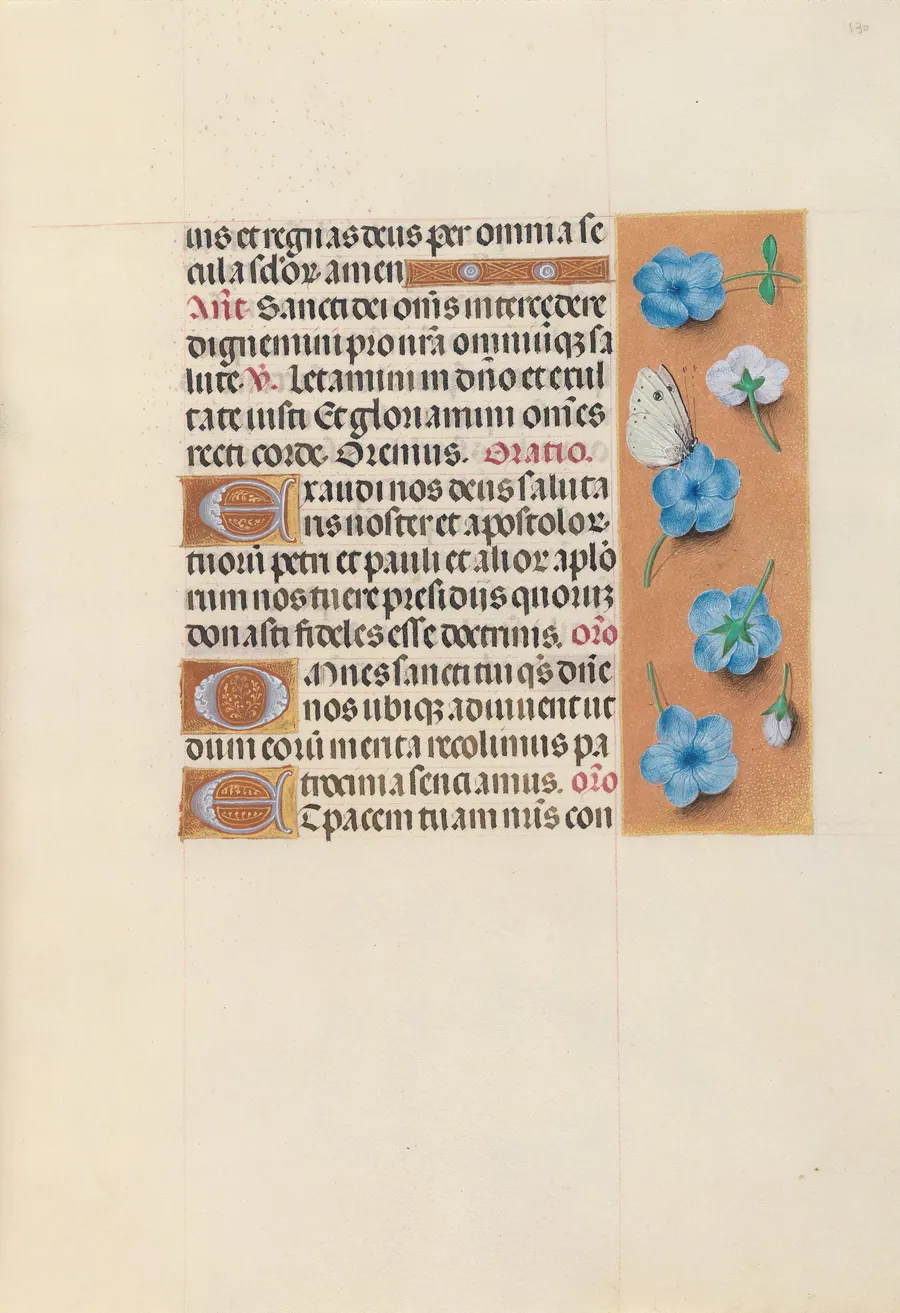 130
uis et regnas deus per omnia se
cula sclor amen
Añt Sancti dei om̄s intercedere
dignemini pro nr̄a omniūqꝫ sa
lute. V. Letamini in dn̄o et exul
tate iusti Et gloriamini om̄es
recti corde. Oremus. Oratio.
Exaudi nos deus saluta
ris noster et apostoloꝝ
tuorū petri et pauli et alioꝝ aplo
rum nos tuere presidiis quoruꝫ
donasti fideles esse doctrinis. or̄o
Omnes sancti tui qs̄ dn̄e
nos ubiqꝫ adiuuent ut
dum eorū merita recolimus pa
trocinia senciamus. or̄o
Et pacem tuam nr̄is con